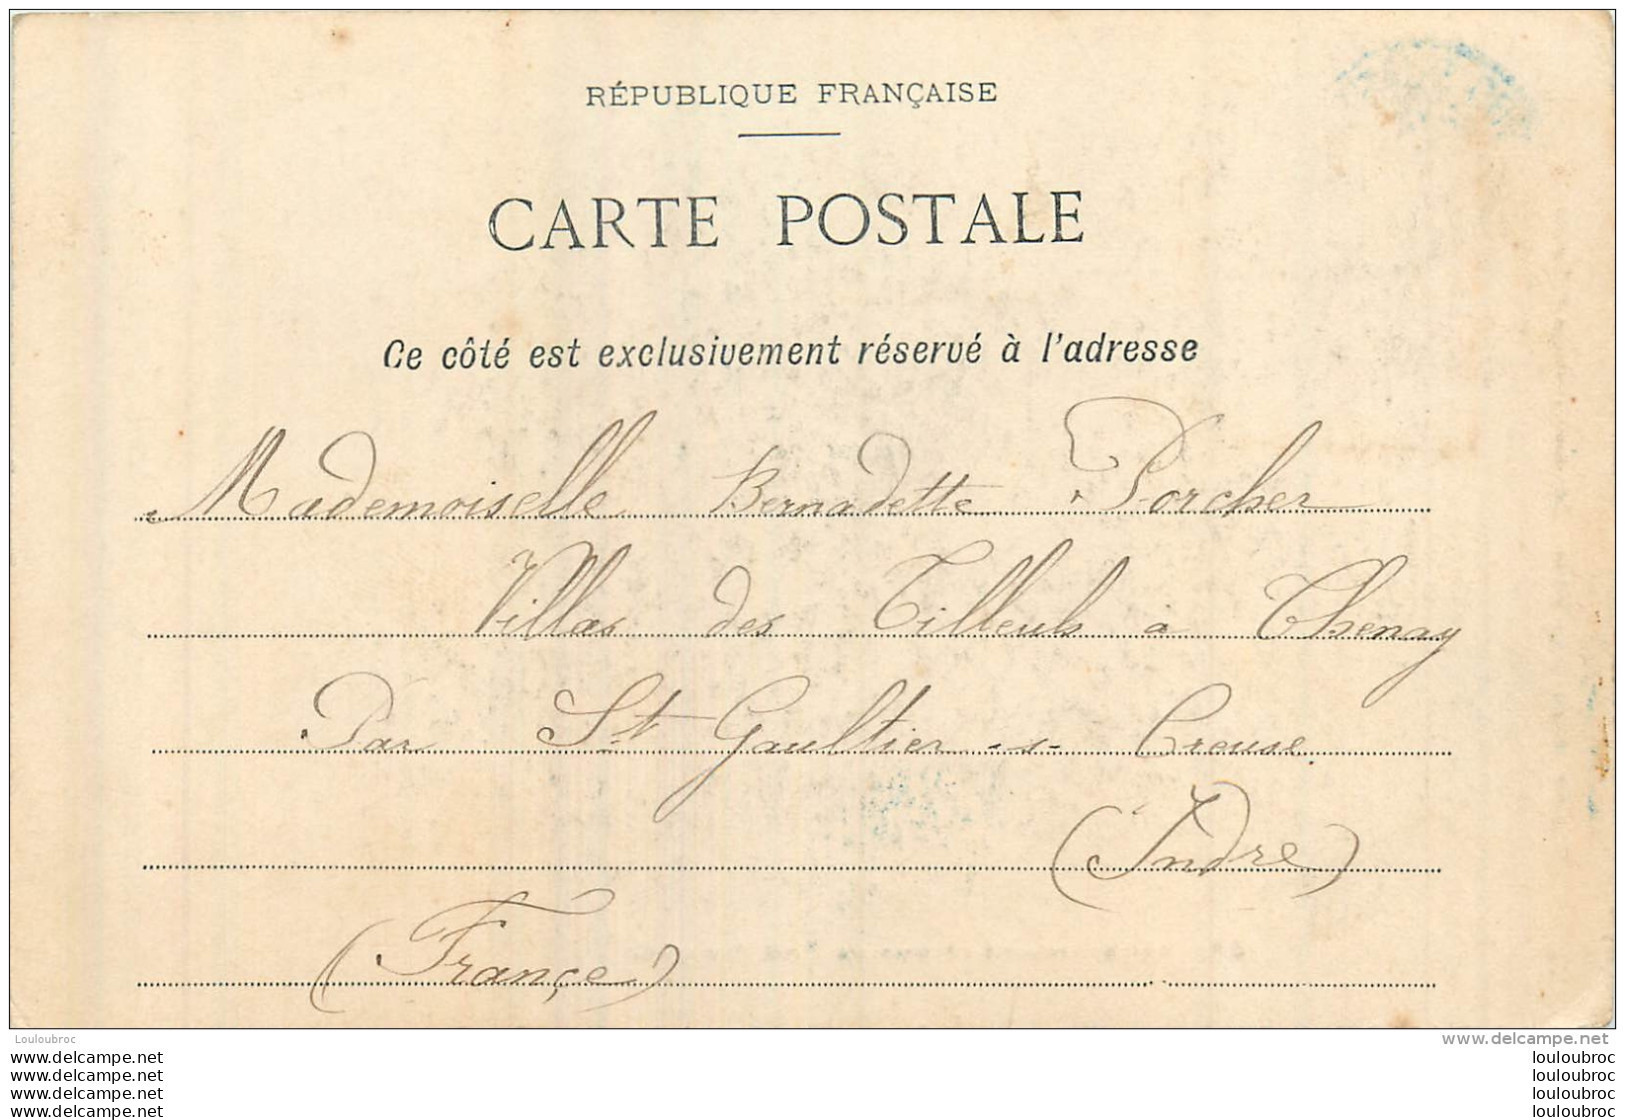 RÉPUBLIQUE FRANÇAISE
CARTE POSTALE
Ce côté est exclusivement réservé à l'adresse
Mademoiselle Bernadette Porcher
Villas des Tilleuls à Thenay
Par St Gaultier -s- Creuse.
(Indre)
(Françe)
Louloubroc
www.delcampe.net
www.delcampe.net
www.delcampe.net
www.delcampe.net
www.delcampe.net
louloubroc
louloubroc
louloubroc
louloubroc